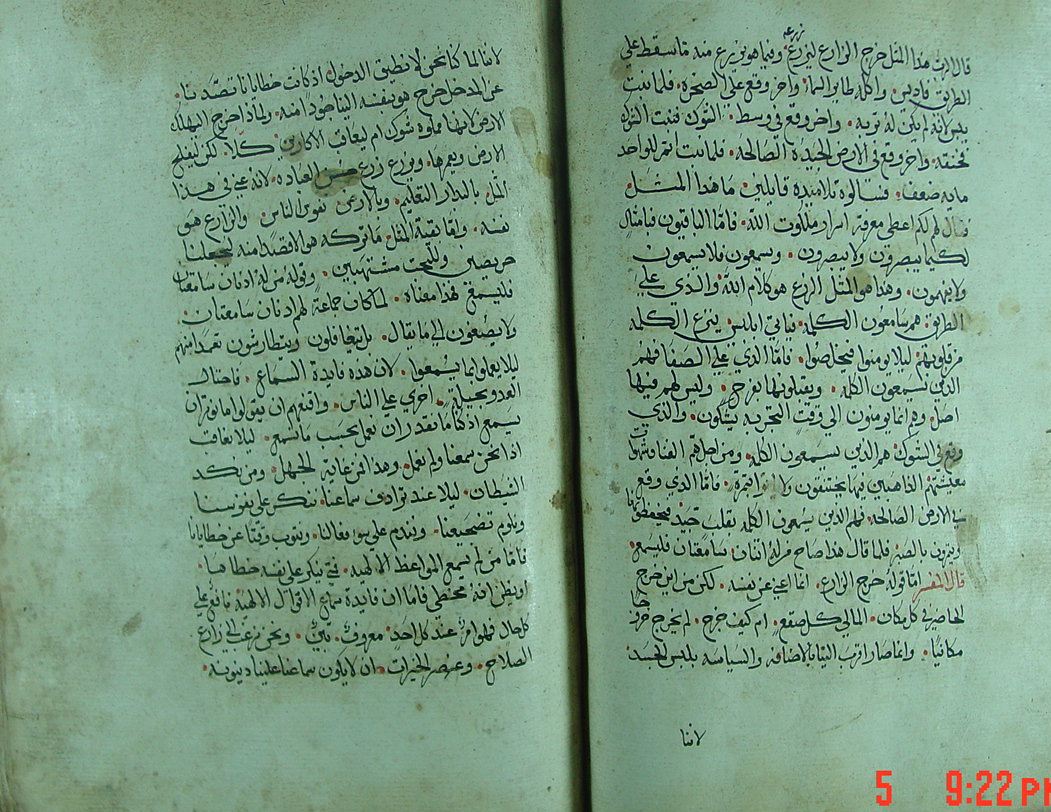 قال الرب هذا المثل خرج الزارع ليزرع زرعه وفيما هو يزرع منه ما سقط على
الطريق فاديس. واكله طاير السما. واخر وقع على الصخره. فلما نبت
يبس لانه لم يكن له تربه. واخر وقع في وسط الشوك فنبت الشوك
فخنقه. واخر وقع في الارض الجيده الصالحة. فلما نبت اثمر للواحد
مايه ضعف. فسالوه تلاميذه قايلين. ما هذا المثل
فقال لهم لكم اعطى معرفة اسرار ملكوت الله. فاما الباقيون فبامثال
لكيما يبصرون ولا يبصرون. ويسمعون فلا يسمعون
ولا يفهمون. وهذا هو المثل الزرع هو كلام الله والذي على
الطريق. هم سامعون الكلمه. فياتي ابليس ينزع الكلمه
من قلوبهم. ليلا يومنوا فيخلصوا. فاما الذي على الصفا فهم
الذين يسمعون الكلمة. ويقبلونها بفرح. وليس لهم فيها
اصل. وهم انما يومنون الى وقت التجربه يشكون. والذي
وقع في الشوك هم الذين يسمعون الكلمه. ومن اجل هم الغنا وشهوات
معيشتهم الذاهبين فيها يختنقون ولا ثمرة. فاما الذي وقع
في الارض الصالحه. فهم الذين يسمعون الكلمه بقلب جيد فيحفظونها
ويثمرون بالصبر فلما قال هذا صاح من له اذنان سامعتان فليسمع.
قال المفسر اما قوله خرج الزارع. انما اعني عن نفسه. لكن من اين خرج
الحاضر في كل مكان. المالي كل صقع. ام كيف خرج. لم يخرج خروجا
مكانيا. وانما صار اقرب الينا بالاضافه والسياسه بلبس الجسد.
لاننا
لاننا لما كنا نحن لا نطيق الدخول اذ كانت خطايانا تصدنا.
عن المدخل خرج هو بنفسه الينا جودا منه. ولماذا خرج ايهلك
الارض لانها مملوه شوك ام ليعاقب الاكارين. كلا لكن ليفلح
الارض ويعمرها. ويزرع زرع حسن العباده. لانه عني في هذا
المثل بالبدار التعليم. وبالارض نفوس الناس. والزارع هو
نفسه. واما بقية المثل. ما تركه هو الا قصدا منه ليجعلنا
حريصين وللبحث مشتهيين. وقوله من له اذنان سامعتان
فليسمع فهذا معناه. لما كان جماعة لهم اذنان سامعتان.
ولا يصغون الى ما يقال. بل يتغافلون ويتطارشون تعمدا منهم
ليلا يعملوا بما يسمعوا. لان هذه فايدة السماع. فاحتال
العدو بحيلة اخرى على الناس. واقنعهم ان يقولوا ما نوثر ان
نسمع اذ كنا ما نقدر ان نعمل بحسب ما نسمع. ليلا نعاقب
اذا نحن سمعنا ولم نعمل. وهذا من غاية الجهل. ومن نكد
الشيطان. ليلا عند ترادف سماعنا. ننكر على نفوسنا
ونلوم تضجيعنا. ونندم على سو افعالنا. ونتوب وقتا عن خطايانا
فاما من لم يسمع المواعظ الالهيه. فمتى ينكر على نفسه خطاها.
او يظن انه مخطي فاما ان فايدة سماع الاقوال الالهية نافع على
كل حال فهو امر عند كل احد معروف. بين. ونحن نرغب الى زارع
الصلاح. وعنصر الخيرات. ان لا يكون سماعنا علينا دينونه.
5 9:22 PM